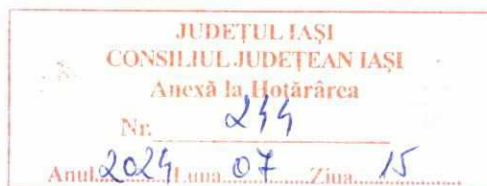 JUDEŢUL IAŞI
CONSILIUL JUDEŢEAN IAŞI
Anexă la Hotărârea
Nr. 244
Anul 2024 Luna 07 Ziua 15